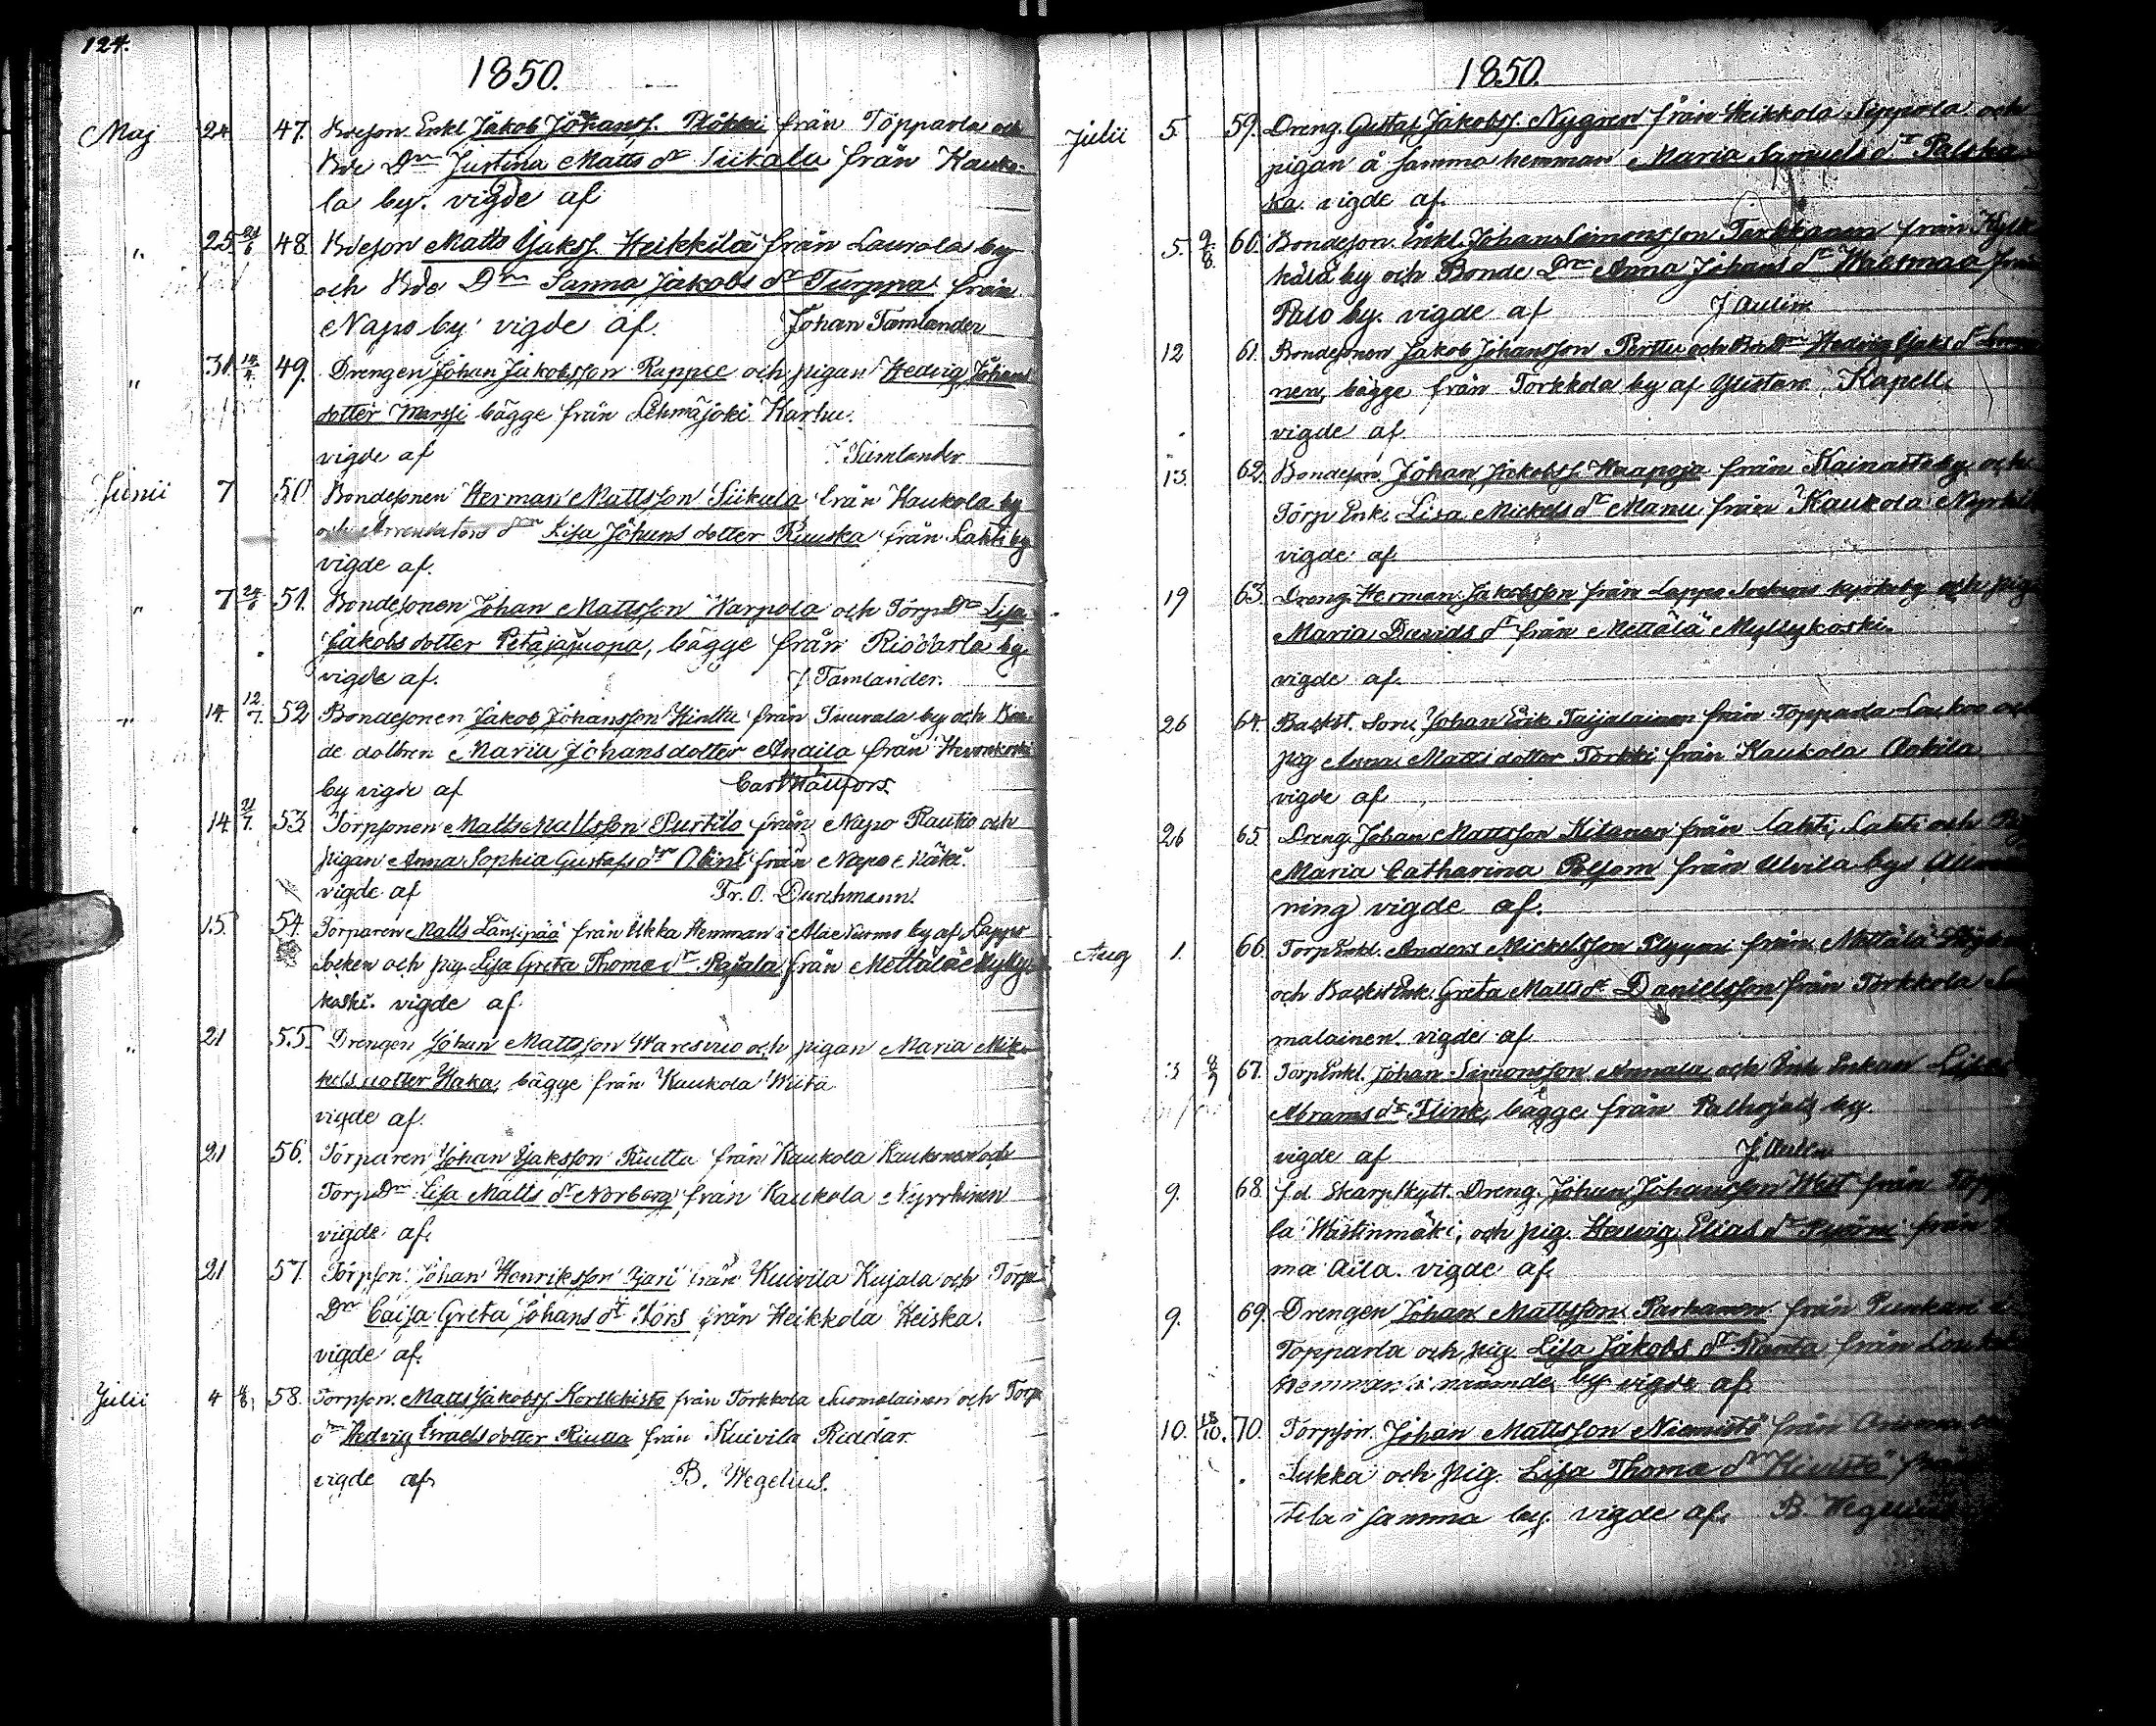 124.
1850.
Maj 24 47. Bdeson Enkl Jakob Johanss. Plökki från Topparla och
Bde Dr Justina Matts dr Siikala från Kauko-
la by. vigde af
" 25 24/6 48 Bdeson Matts Isakss. Heikkilä från Laurola by
och Bde Dr Sanna Jakobs dr Turppa från
Napo by vigde af. Johan Tamlander
" 31 14/7. 49. Drengen Johan Jakobsson Rappee och pigan Hedvig Johans
dotter Marssi bägge från Lehmäjoki Karhu.
vigde af Tamlander
Junii 7 50 Bondesonen Herman Mattsson Siikala från Kaukola by
och Arrendators dr Lisa Johans dotter Ruuska från Lahti by
vigde af.
" 7 24/6 51. Bondesonen Johan Mattsson Warpola och Torp Dr Lisa
Jakobs dotter Petäjäjuopa, bägge från Riddarla by
vigde af. J Tamlander.
" 14. 12/7. 52 Bondesonen Jakob Johansson Hintta från Tuurala by och Bon-
de dottren Maria Johansdotter Andila från
by vigde af Carl Hällfors.
14 21/7. 53. Torpsonen Matts Mattsson Purtilo från Napo Rautio och
pigan Anna Sophia Gustafs dr från Napo Mäki.
vigde af Fr. O. Durchmann.
15. 54. Torparen Matts Länsipää från Ukka Hemman i Ala Nurmo by af Lappo
Socken och pig. Lisa Greta Thomæ dr Rajala från Mettälä Mylly-
koski. vigde af.
" 21 55. Drengen Johan Mattsson Waresvuo och pigan Maria Mik-
kels dotter Haka, bägge från Kaukola Wiita
vigde af.
21 56. Torparen Johan Isaksson Riutta från Kaukola Kaukonen och
Torp Dr Lisa Matts dr Norberg från Kaukola Nyrrhinen
vigde af.
21 57. Torpson. Johan Henriksson Yjari från Kuivila Kujala och Torp
Dr Caisa Greta Johans dr Stors från Heikkola Heiska.
vigde af.
Julii 4 58. Torpson. Matts Jakobss. från Torkkola Suomalainen och Torp
dr Hedvig Israels dotter Riutta från Kuivila Riddar.
vigde af. B. Wegelius.
1850.
Julii 5. 59. Dreng. Gustaf Jakobss. Nygren från Heikkola Seppola och
pigan å samma hemman Maria Samuels dr
ka. vigde af.
5. 9/8. 60. Bondeson. Enkl. Johan Simonsson Tarkkanen från Kylk-
kälä by och Bonde Dr Anna Johans dr Wiiesmaa från
Palo by. vigde af J Aulin.
12 61. Bondesonen Jakob Johansson Perttu och Bde Dr Hedvig Isaks dr
nen, bägge från Torkkola by af Gustav. Kapell.
vigde af.
13. 62. Bondeson. Johan Jakobss. Haapoja från Kainasto by och
Torp Enk. Lisa Mickels dr Manu från Kaukola
vigde af.
19 63. Dreng. Herman Jakobsson från Lappo Sockens kyrkoby och pig
Maria Davids dr från Mettälä Myllykoski.
vigde af.
26 64. Backst. Son. Johan Erik Taijalainen från Topparla Loukoo och
pig Anna Matts dotter Torkki från Kaukola
vigde af
26 65. Dreng. Johan Mattsson Kitanen från Lahti, Lahti och
Maria Catharina Polsom från Ulvila by
ning vigde af.
Aug 1. 66. Torp Enkl. Anders Mickelsson från Mettälä
och Backst Enk. Greta Matts dr Danielsson från Torkkola Suo-
malainen. vigde af
67. Torp Enkl. Johan Simonsson Annala och Enkan Lisa
Abrams dr Flink, bägge från Palhojais by.
vigde af J. Aulin
9. 68. f.d. Skarpskytt. Dreng. Johan Johansson Wist från
la Wästinmäki, och pig. Hedvig Elias dr från
ma Aila. vigde af
9. 69. Drengen Johan Mattsson från Punkari i
Topparla och pig. Lisa Jakobs dr Ranta från
Hemman i nämnde by vigde af.
10. 13/10. 70. Torpson. Johan Mattsson Niemistö från
Sukka och pig. Lisa Thomæ dr
tela i samma by. vigde af. B. Wegelius